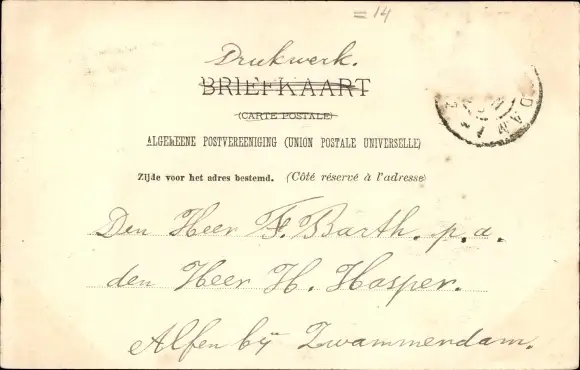 = 14
Drukwerk.
BRIEFKAART
(CARTE POSTALE)
ALGEMEENE POSTVEREENIGING (UNION POSTALE UNIVERSELLE)
Zijde voor het adres bestemd. (Côté réservé à l'adresse)
Den Heer F. Barth. p. a.
den Heer H. Hasper.
Alfen bij Zwammerdam.